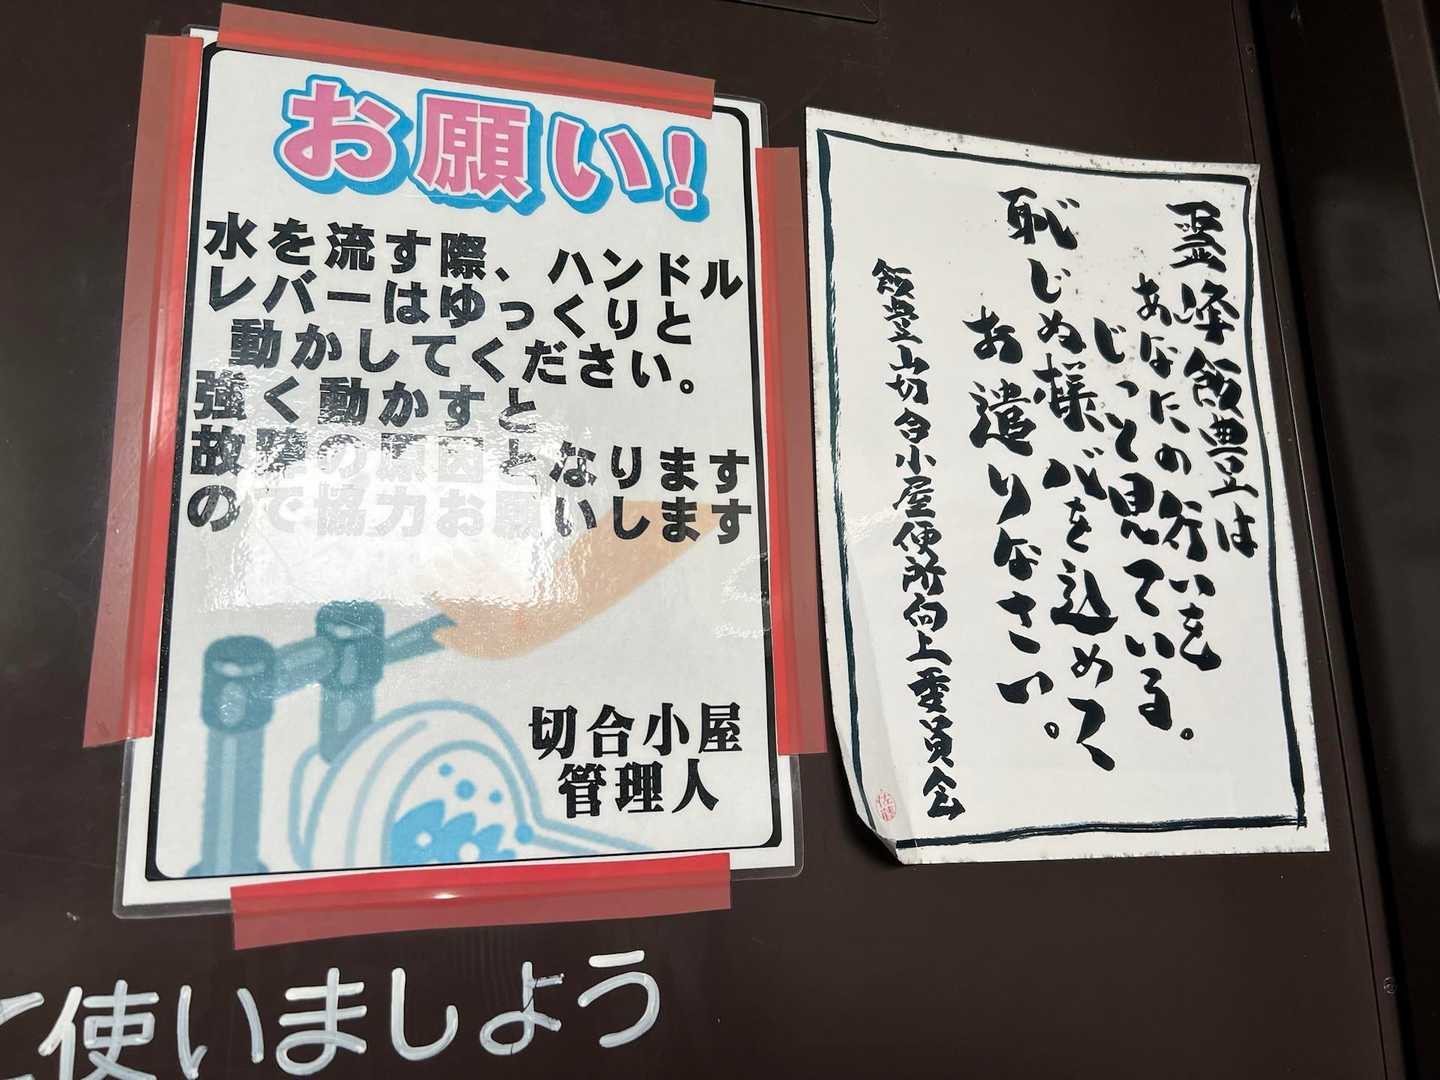 お願い!
水を流す際、ハンドル
レバーはゆっくりと
動かしてください。
強く動かすと
故障の原因となります
ので協力お願いします
切合小屋
管理人
霊峰飯豊は
あなたの行いを
じっと見ている。
恥じぬ様心を込めて
お遣りなさい。
飯豊山切合小屋便所向上委員会
に使いましょう